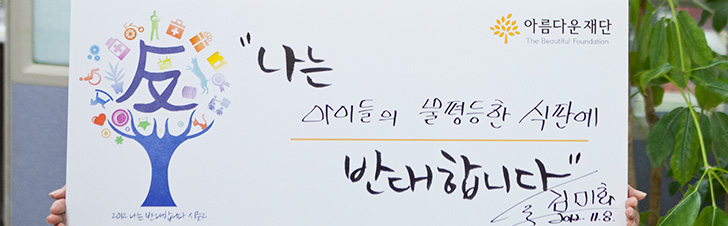 아름다운재단
The Beautiful Foundation
反
"나는
아이들의 불평등한 식판에
반대합니다"
김미화
2012. 11. 8.
2012 나는 반대합니다 시즌2